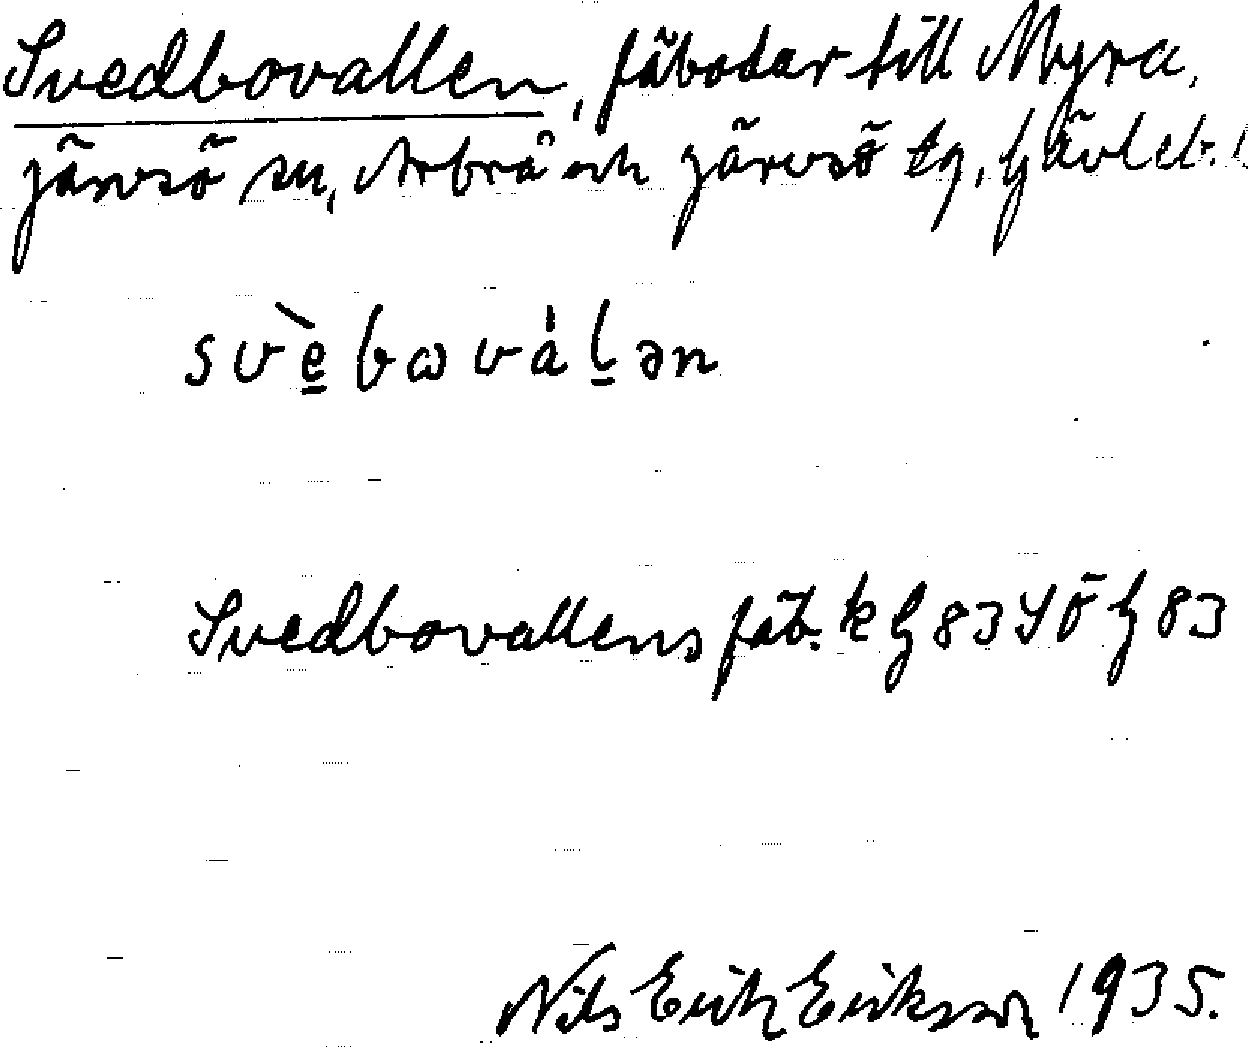 Svedbovallen, fäbodar till Myra,
Järvsö sn, Arbrå och Järvsö tg, Gävleb. l
svèbωvàlən
Svedbovallens fäb. k G 83 YÖ G 83
Nils Erik Eriksson 1935.